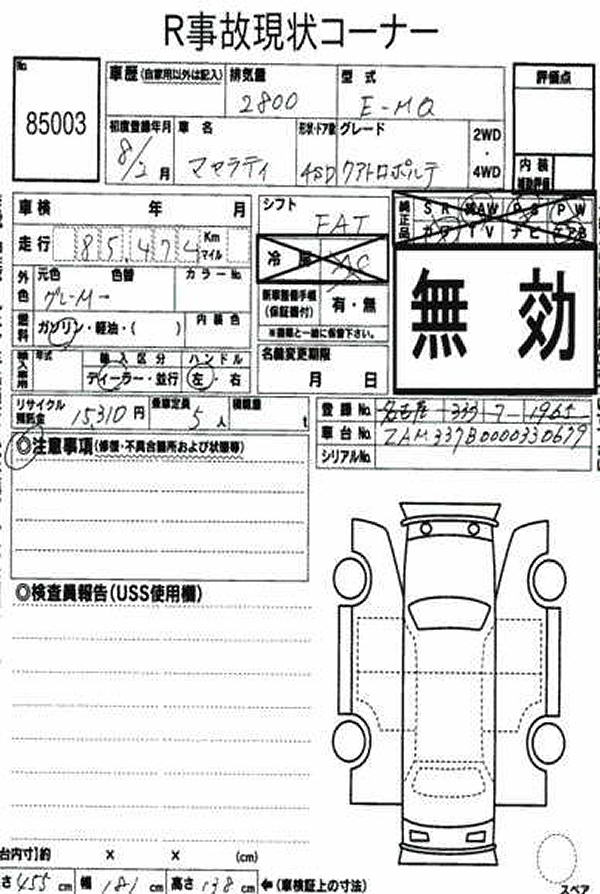 R事故現状コーナー
No.
85003
車歴(自家用以外は記入)
排気量
型式
2800
E-MQ
初度登録年月
車名
形状・ドア数
グレード
2WD
・
4WD
8/2月
マセラティ
4SD
クアトロポルテ
評価点
内装
補助評価
車検 年 月
走行 85,474 Km
マイル
外色
元色 色替 カラーNo.
グレーM→
燃料
ガソリン・軽油・( )
内装色
輸入車用
年式
輸入区分
ハンドル
ディーラー・並行
左・右
シフト
FAT
冷房
AC
新車整備手帳
(保証書付)
有・無
※書類と一緒に保管下さい。
名義変更期限
月 日
純正品
SR AW PS PW
カワ TV ナビ エアB
無効
リサイクル
預託金
15,310円
乗車定員
5人
積載量
t
登録No. 名古屋 333 7 1965
車台No. ZAM337B0000330679
シリアルNo.
◎注意事項(修復・不具合箇所および状態等)
◎検査員報告(USS使用欄)
台内寸]約 × × (cm)
さ455cm 幅181cm 高さ138cm ←(車検証上の寸法)
スペア